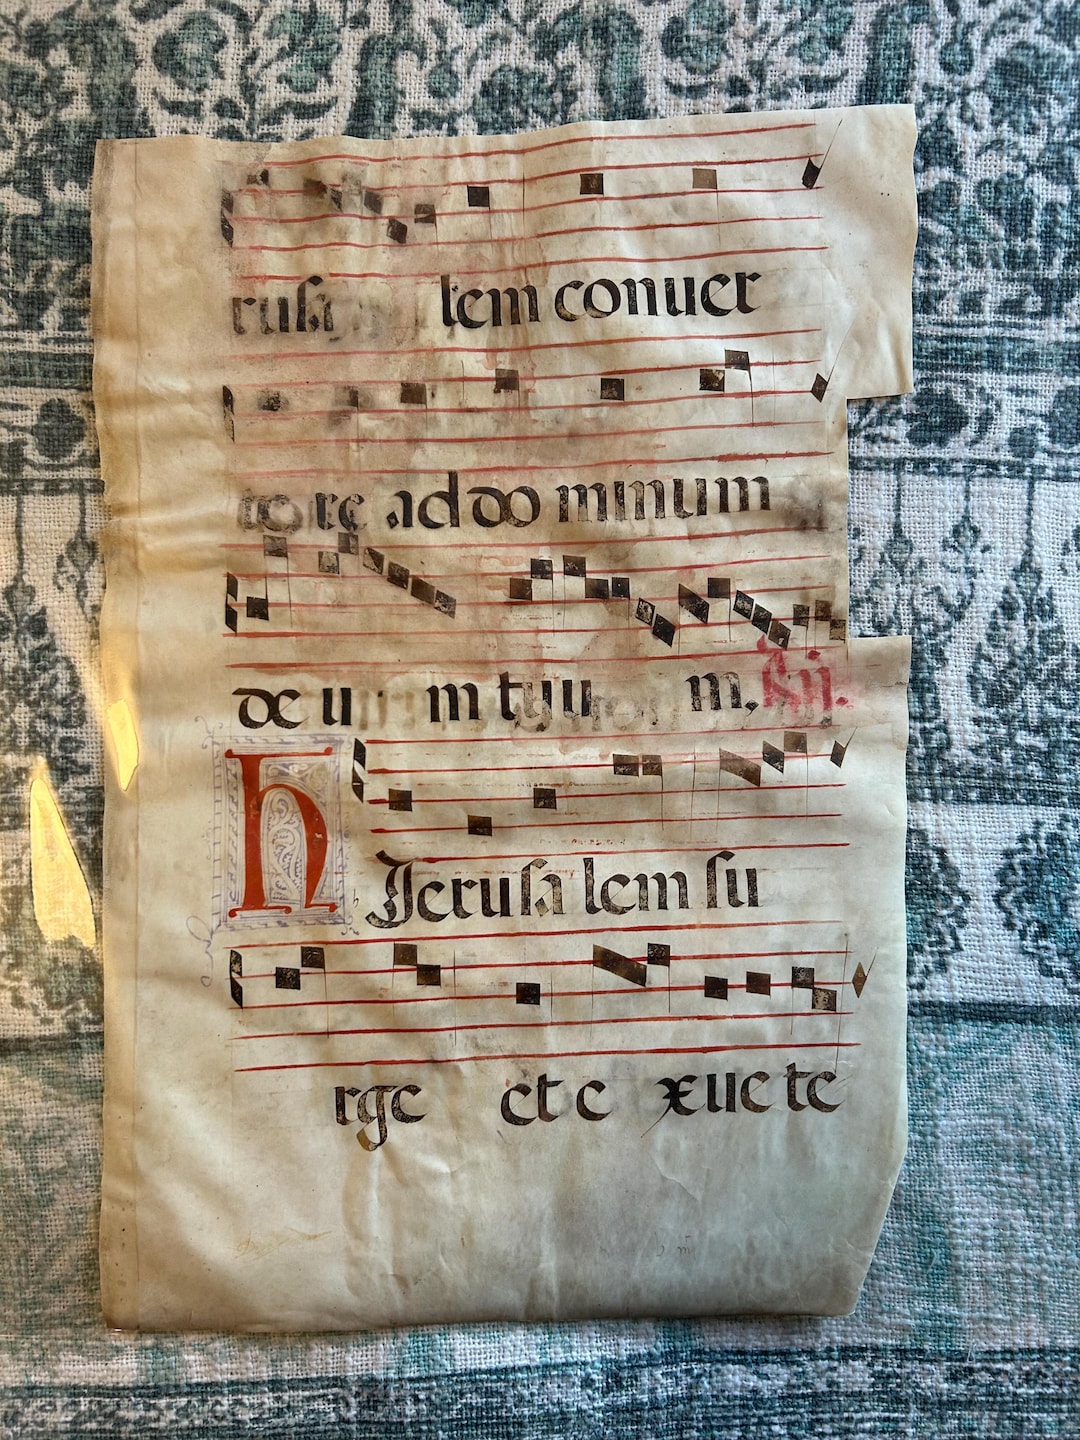 rusa lem conuer
te re ad do minum
de u m tuu m, ℟ ij.
h Jerusa lem su
rge et e xue te